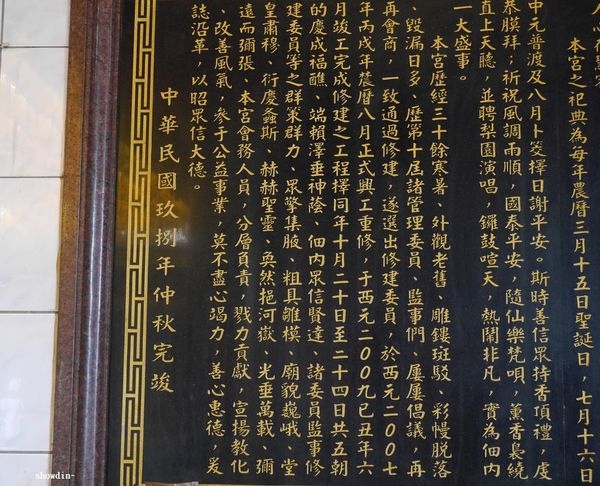 本宮之祀典為每年農曆三月十五日聖誕日，七月十六日
中元普渡及八月卜筊擇日謝平安。斯時善信眾持香頂禮，虔
恭膜拜；祈祝風調雨順，國泰平安，隨仙樂梵唄，薰香裊繞
直上天聽，並聘梨園演唱，鑼鼓喧天，熱鬧非凡，實為佃內
一大盛事。
本宮歷經三十餘寒暑、外觀老舊、雕鏤斑駁、彩幔脫落
、毀漏日多、歷第十屆諸管理委員、監事們、屢屢倡議，再
再會商，一致通過修建，遂選出修建委員，於西元二00七
年丙戌年農曆八月正式興工重修，于西元二00九己丑年六
月竣工完成修建之工程擇同年十月二十日至二十四日共五朝
的慶成福醮、端賴澤垂神蔭、佃內眾信賢達、諸委員監事修
建委員等之群策群力、眾擎集腋、粗具雛模、廟貌巍峨、堂
皇肅穆、衍慶螽斯、赫赫聖靈、奐然挹河嶽、光垂萬載、彌
遠而彌張、本宮會務人員，分層負責，戮力貢獻，宣揚教化
、改善風氣，參予公益事業，莫不盡心竭力，善心惠德，爰
誌沿革，以昭眾信大德。
中華民國玖捌年仲秋完竣
showdin-